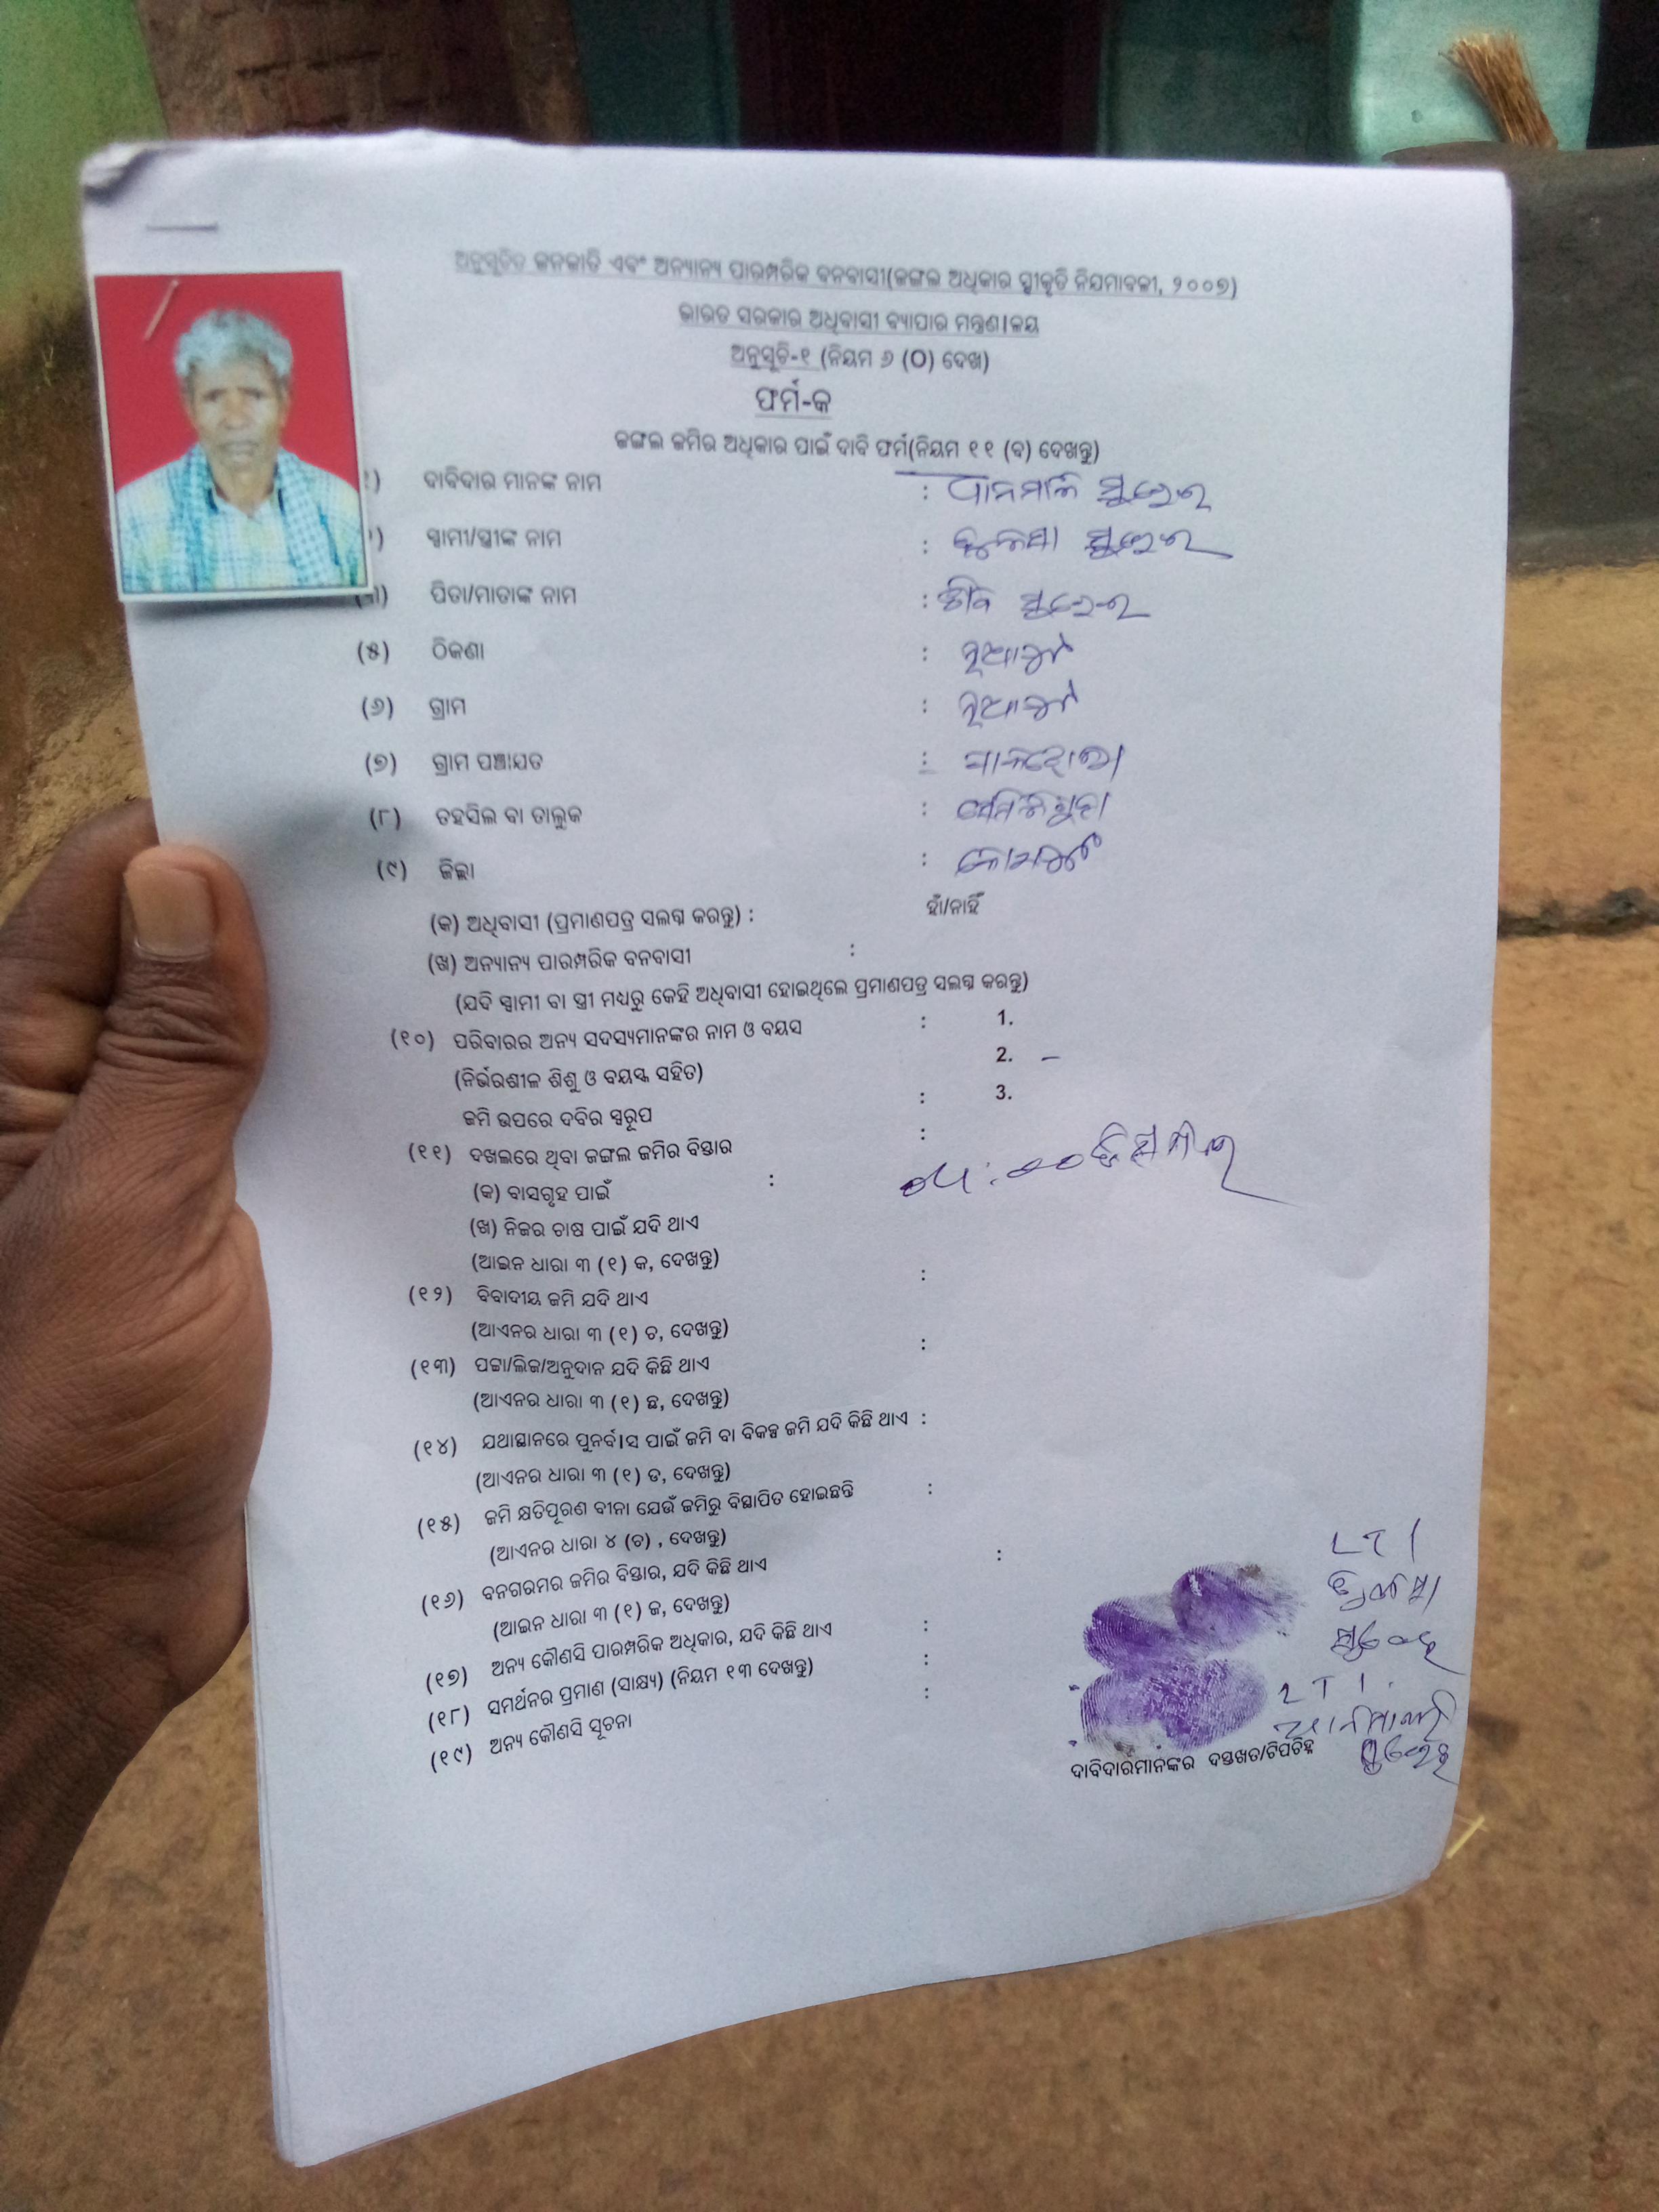 ଅନୁସୂଚିତ ଜନଜାତି ଏବଂ ଅନ୍ୟାନ୍ୟ ପାରମ୍ପରିକ ବନବାସୀ(ଜଙ୍ଗଲ ଅଧିକାର ସ୍ଵୀକୃତି ନିୟମାବଳୀ, ୨୦୦୭)
ଭାରତ ସରକାର ଅଧିବାସୀ ବ୍ୟାପାର ମନ୍ତ୍ରଣାଳୟ
ଅନୁସୂଚି-୧ (ନିୟମ ୬ (O) ଦେଖ)
ଫର୍ମ-କ
ଜଙ୍ଗଲ ଜମିର ଅଧିକାର ପାଇଁ ଦାବି ଫର୍ମ(ନିୟମ ୧୧ (ବ) ଦେଖନ୍ତୁ)
୧) ଦାବିଦାର ମାନଙ୍କ ନାମ :
) ସ୍ଵାମୀ/ସ୍ତ୍ରୀଙ୍କ ନାମ :
ପିତା/ମାତାଙ୍କ ନାମ :
(୫) ଠିକଣା : ନୂଆଗାଁ
(୬) ଗ୍ରାମ : ନୂଆଗାଁ
(୭) ଗ୍ରାମ ପଞ୍ଚାଯତ :
(୮) ତହସିଲ ବା ତାଲୁକ :
(୯) ଜିଲ୍ଲା :
(କ) ଅଧିବାସୀ (ପ୍ରମାଣପତ୍ର ସଲଗ୍ନ କରନ୍ତୁ) : ହାଁ/ନାହିଁ
(ଖ) ଅନ୍ୟାନ୍ୟ ପାରମ୍ପରିକ ବନବାସୀ :
(ଯଦି ସ୍ଵାମୀ ବା ସ୍ତ୍ରୀ ମଧ୍ୟରୁ କେହି ଅଧିବାସୀ ହୋଇଥିଲେ ପ୍ରମାଣପତ୍ର ସଲଗ୍ନ କରନ୍ତୁ)
(୧୦) ପରିବାରର ଅନ୍ୟ ସଦସ୍ୟମାନଙ୍କର ନାମ ଓ ବୟସ : 1.
2. –
(ନିର୍ଭରଶୀଳ ଶିଶୁ ଓ ବୟସ୍କ ସହିତ)
3.
ଜମି ଉପରେ ଦବିର ସ୍ଵରୂପ :
(୧୧) ଦଖଲରେ ଥିବା ଜଙ୍ଗଲ ଜମିର ବିସ୍ତାର :
(କ) ବାସଗୃହ ପାଇଁ :
(ଖ) ନିଜର ଚାଷ ପାଇଁ ଯଦି ଥାଏ
(ଆଇନ ଧାରା ୩ (୧) କ, ଦେଖନ୍ତୁ)
(୧୨) ବିବାଦୀୟ ଜମି ଯଦି ଥାଏ :
(ଆଏନର ଧାରା ୩ (୧) ଚ, ଦେଖନ୍ତୁ)
(୧୩) ପଟ୍ଟା/ଲିଜ/ଅନୁଦାନ ଯଦି କିଛି ଥାଏ :
(ଆଏନର ଧାରା ୩ (୧) ଛ, ଦେଖନ୍ତୁ)
(୧୪) ଯଥାସ୍ଥାନରେ ପୁନର୍ବାସ ପାଇଁ ଜମି ବା ବିକଳ୍ପ ଜମି ଯଦି କିଛି ଥାଏ :
(ଆଏନର ଧାରା ୩ (୧) ଡ, ଦେଖନ୍ତୁ)
(୧୫) ଜମି କ୍ଷତିପୂରଣ ବୀନା ଯେଉଁ ଜମିରୁ ବିସ୍ଥାପିତ ହୋଇଛନ୍ତି :
(ଆଏନର ଧାରା ୪ (ଚ) , ଦେଖନ୍ତୁ)
(୧୬) ବନଗରମର ଜମିର ବିସ୍ତାର, ଯଦି କିଛି ଥାଏ :
(ଆଇନ ଧାରା ୩ (୧) ଜ, ଦେଖନ୍ତୁ)
(୧୭) ଅନ୍ୟ କୌଣସି ପାରମ୍ପରିକ ଅଧିକାର, ଯଦି କିଛି ଥାଏ :
(୧୮) ସମର୍ଥନର ପ୍ରମାଣ (ସାକ୍ଷ୍ୟ) (ନିୟମ ୧୩ ଦେଖନ୍ତୁ) :
(୧୯) ଅନ୍ୟ କୌଣସି ସୂଚନା :
LTI
LTI.
ଦାବିଦାରମାନଙ୍କର ଦସ୍ତଖତ/ଟିପଚିହ୍ନ